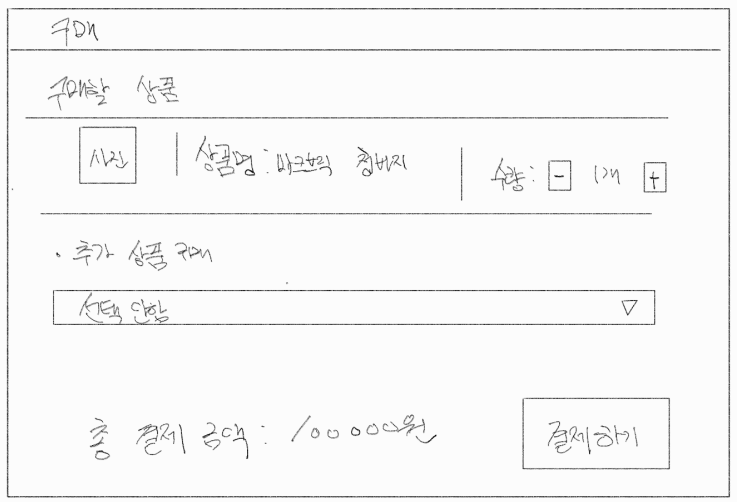 구매
구매할 상품
사진 상품명 : 마크 청바지 수량 : - 1개 +
· 추가 상품 구매
선택 안함 ▽
총 결제 금액 : 100000원 결제하기